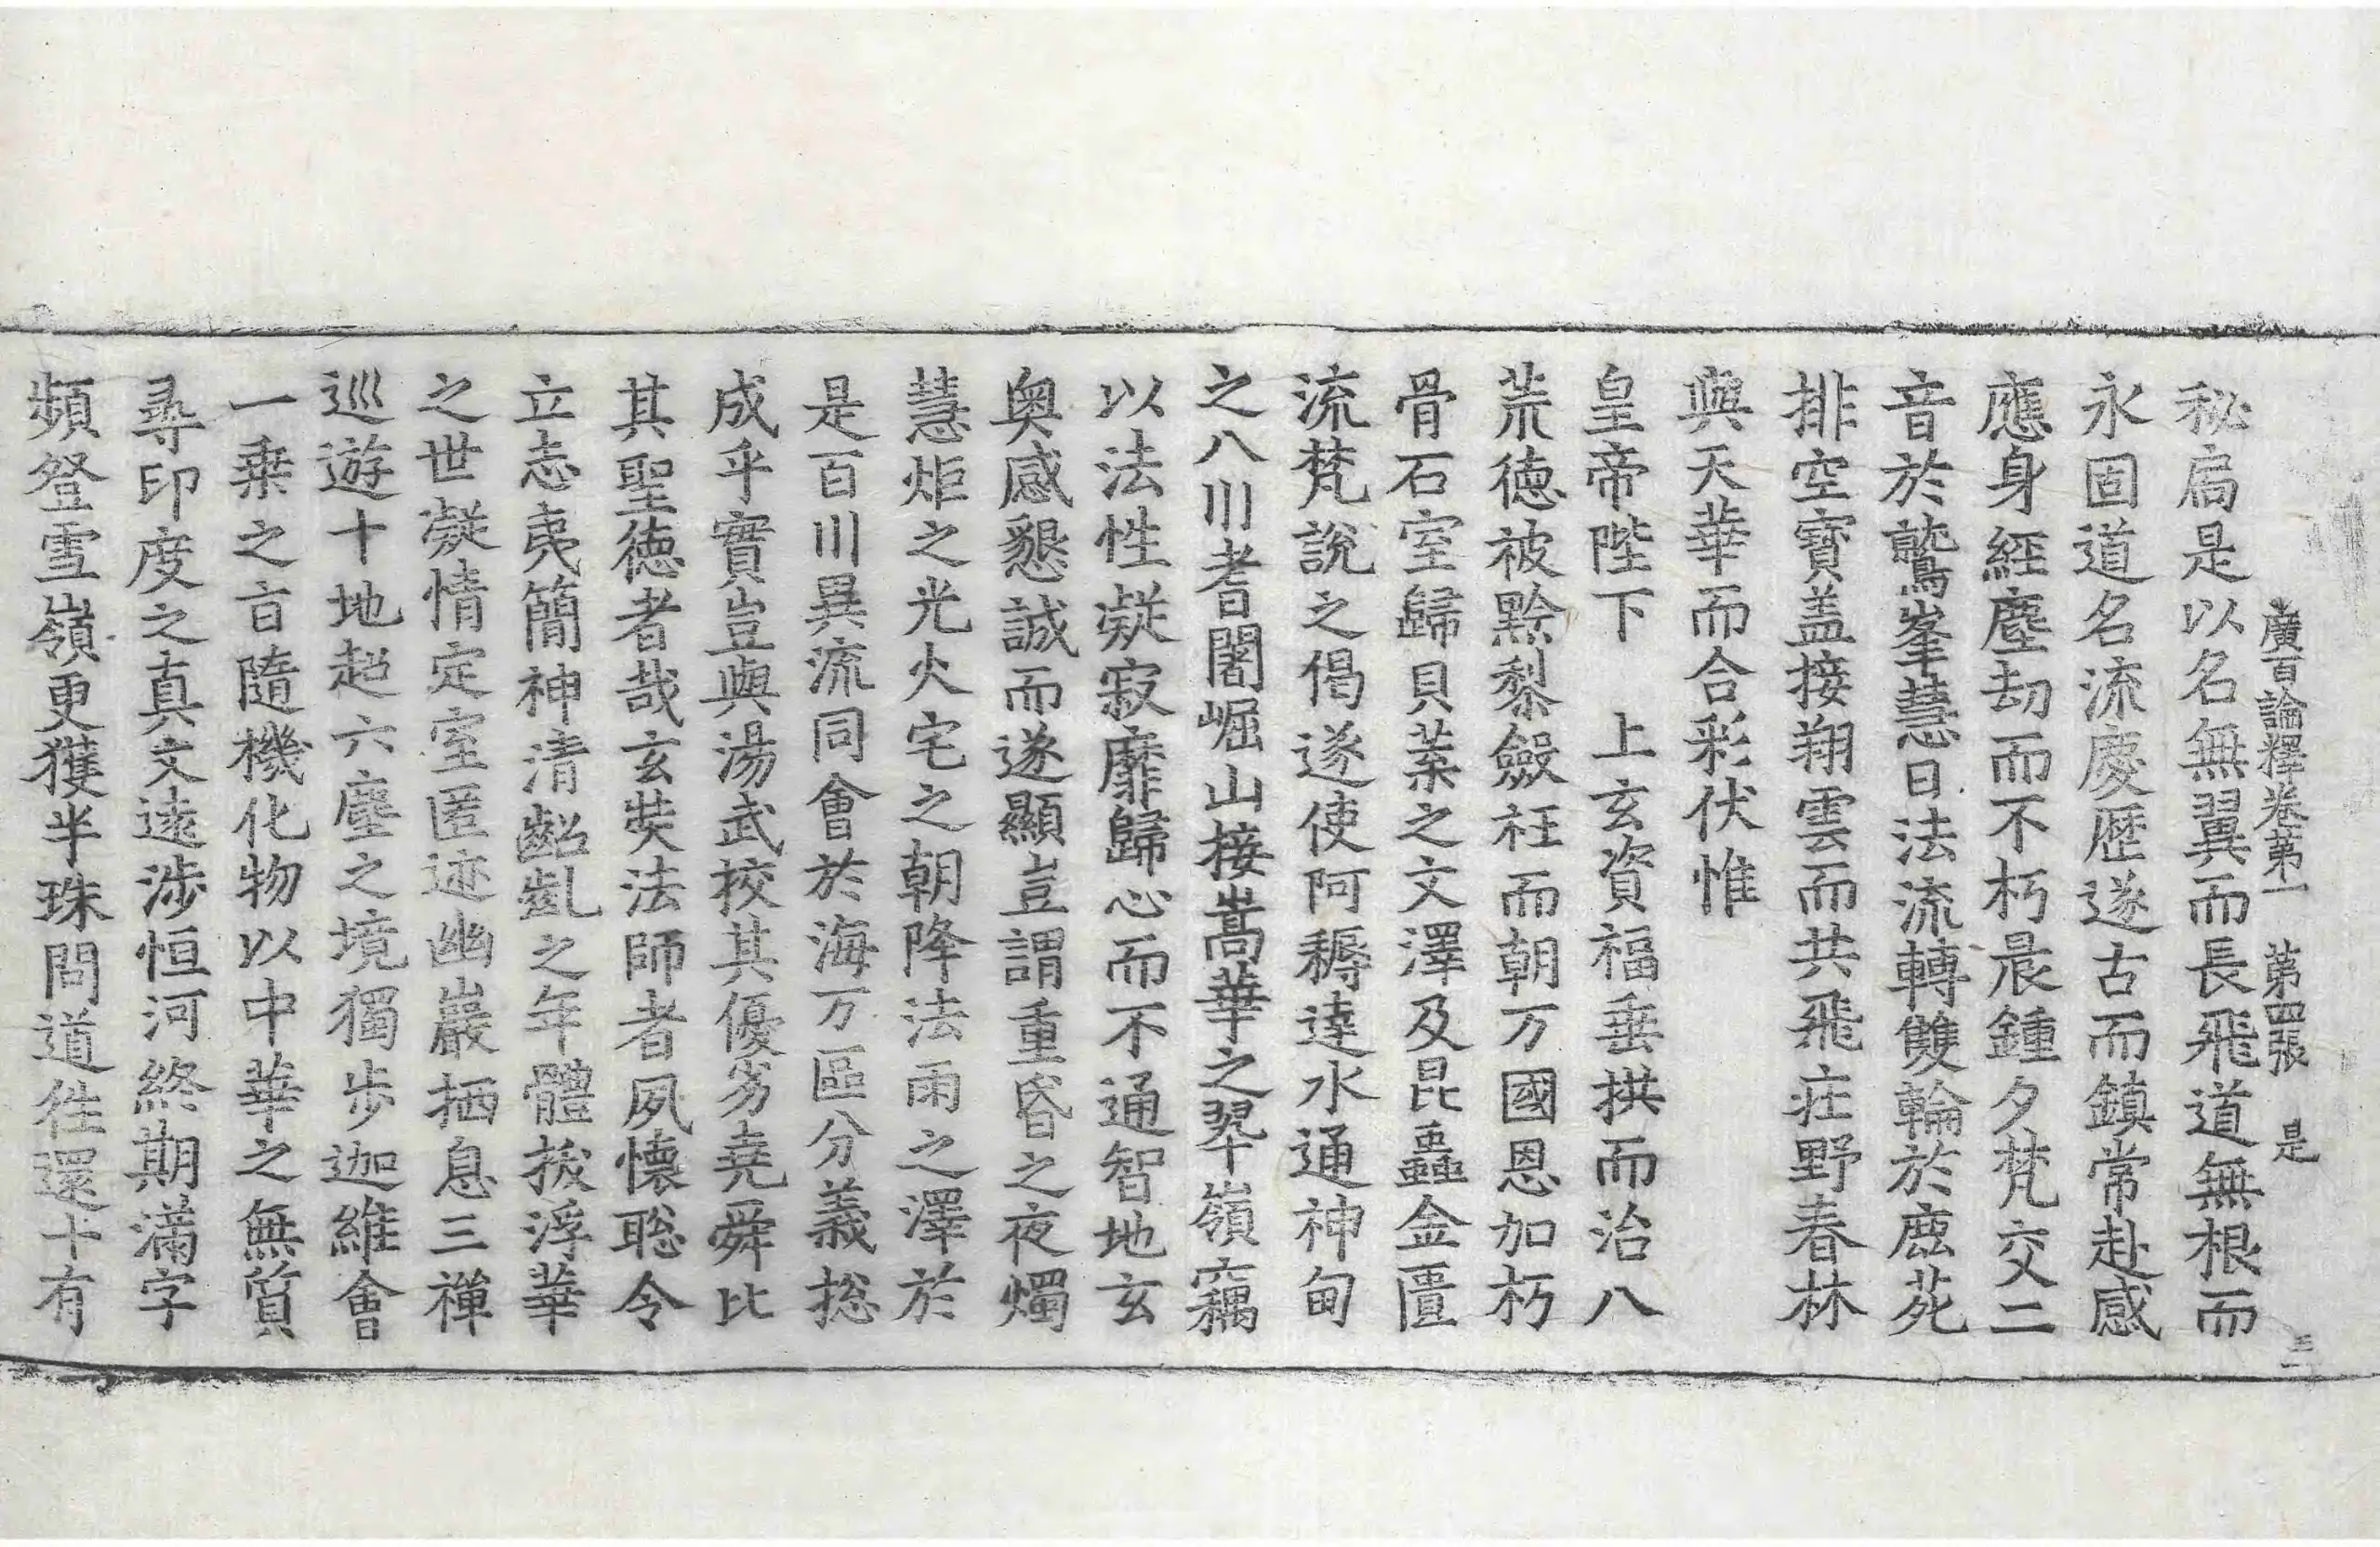 廣百論釋卷第一　第四張　是
秘扃是以名無翼而長飛道無根而
永固道名流慶歷遂古而鎮常赴感
應身經塵劫而不朽晨鍾夕梵交二
音於鷲峯慧日法流轉雙輪於鹿菀
排空寶盖接翔雲而共飛庄野春林
與天華而合彩伏惟
皇帝陛下　上玄資福垂拱而治八
荒德被黔黎斂衽而朝万國恩加朽
骨石室歸貝葉之文澤及昆蟲金匱
流梵說之偈遂使阿耨達水通神甸
之八川耆闍崛山接嵩華之翠嶺竊
以法性凝寂靡歸心而不通智地玄
奥感懇誠而遂顯豈謂重昏之夜燭
慧炬之光火宅之朝降法雨之澤於
是百川異流同會於海万區分義揔
成乎實豈與湯武挍其優劣堯舜比
其聖德者哉玄奘法師者夙懷聡令
立志夷簡神清齠齓之年體拔浮華
之世凝情定室匿迹幽巖栖息三禪
巡遊十地超六塵之境獨步迦維會
一乗之旨隨機化物以中華之無質
尋印度之真文遠涉恒河終期滿字
頻登雪嶺更獲半珠問道徃還十有